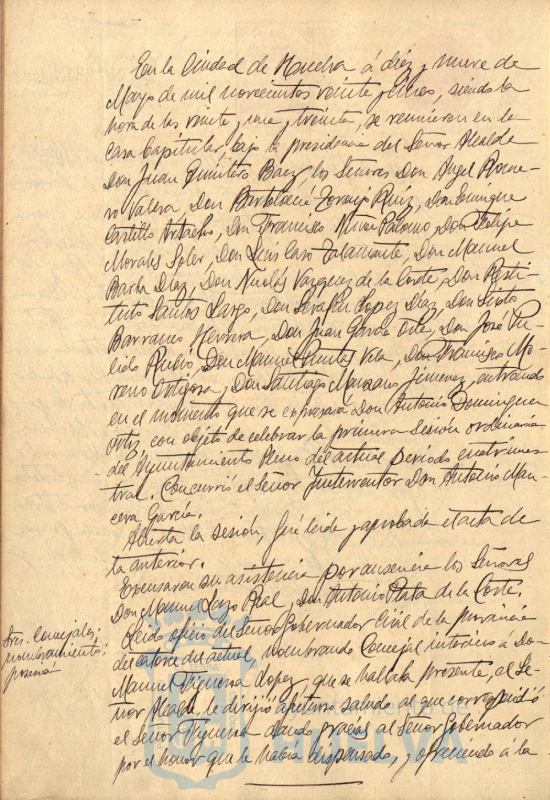 En la Ciudad de Huelva á diez y nueve de
Mayo de mil novecientos veinte y cinco, siendo la
hora de las veinte y una y treinta, se reunieron en la
Casa Capitular, bajo la presidencia del Señor Alcalde
Don Juan Quintero Baez, los Señores Don Angel Rome-
ro Valera, Don Bartolomé Toronjo Ruiz, Don Enrique
Castillo Don Francisco Muñoz Palomo, Don Felipe
Morales Soler, Don Luis Caso Don Manuel
Barba Diaz, Don Nicolás Vazquez de la Corte, Don Resti-
tuto Santos Largo, Don Serafin Lopez Diaz, Don Sixto
Barranco Herrera, Don Juan Garcia Orta, Don José Pu-
lido Rubio, Don Manuel Puentes Vela, Don Francisco Mo-
reno Ortigosa, Don Santiago Manzano Jimenez, entrando
en el momento que se expresará Don Antonio Dominguez
Ortiz con objeto de celebrar la primera sesión ordinaria
del Ayuntamiento Pleno del actual periodo cuatrimes
tral. Concurrió el Señor Interventor Don Antonio Man-
cera García.
Abierta la sesión, fué leida y aprobada el acta de
la anterior.
Excusaron su asistencia por ausencia los Señores
Don Manuel Lazo Real, Don Antonio Plata de la Corte.
Sres. Concejales;
nombramiento:
Leido oficio del Señor Gobernador Civil de la provincia
de catorce del actual, nombrando Concejal interino á Don
Manuel Figueroa Lopez, que se hallaba presente, el Se-
ñor Alcalde, le dirigió afectuoso saludo al que correspondió
el Señor Figueroa dando gracias al Señor Gobernador
por el honor que le habia dispensado, y ofreciendo á la